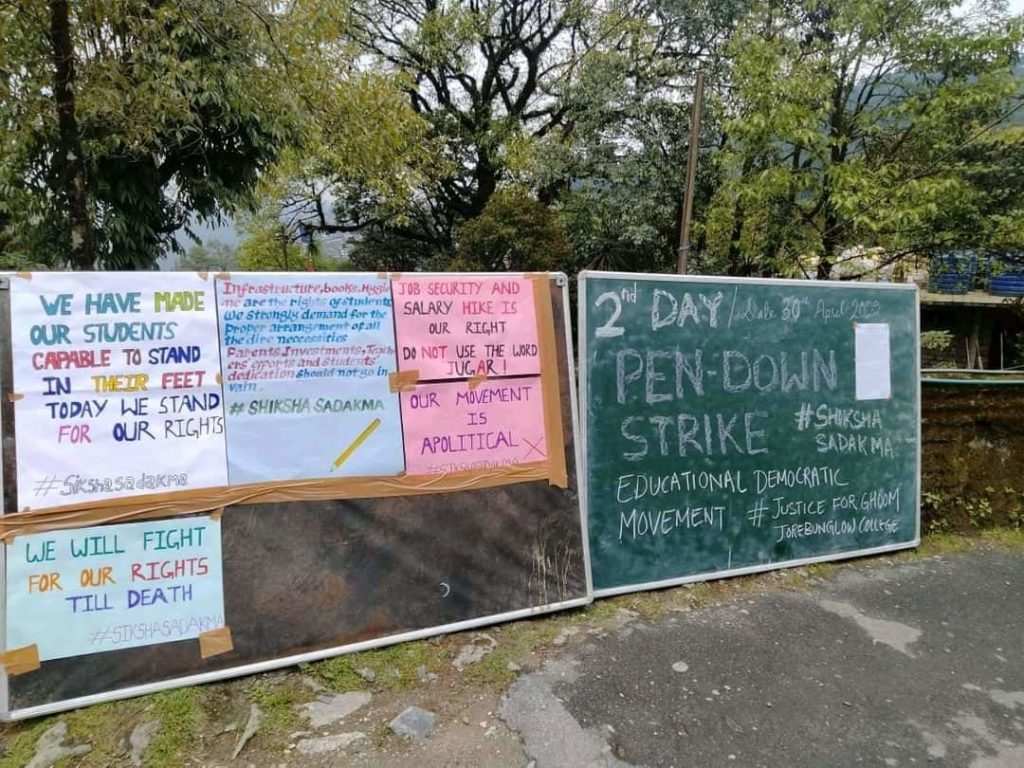 WE HAVE MADE
OUR STUDENTS
CAPABLE TO STAND
IN THEIR FEET
TODAY WE STAND
FOR OUR RIGHTS
#Sikshasadakma
Infrastructure, books, Hygie
ne are the rights of students
We strongly demand for the
proper arrangement of all
the dire neccessities
Parents Investments, Teach
ers' efforts and students'
dedication should not go in
vain.
# SHIKSHA SADAKMA
JOB SECURITY AND
SALARY HIKE IS
OUR RIGHT
DO NOT USE THE WORD
JUGAR!
OUR MOVEMENT
IS
APOLITICAL
#SIKSHASADAKMA
WE WILL FIGHT
FOR OUR RIGHTS
TILL DEATH
#SIKSHASADAKMA
2nd DAY / Date 30th April
PEN-DOWN
STRIKE #SHIKSHA
SADAKMA
EDUCATIONAL DEMOCRATIC
MOVEMENT # JUSTICE FOR GHOOM
JOREBUNGLOW COLLEGE